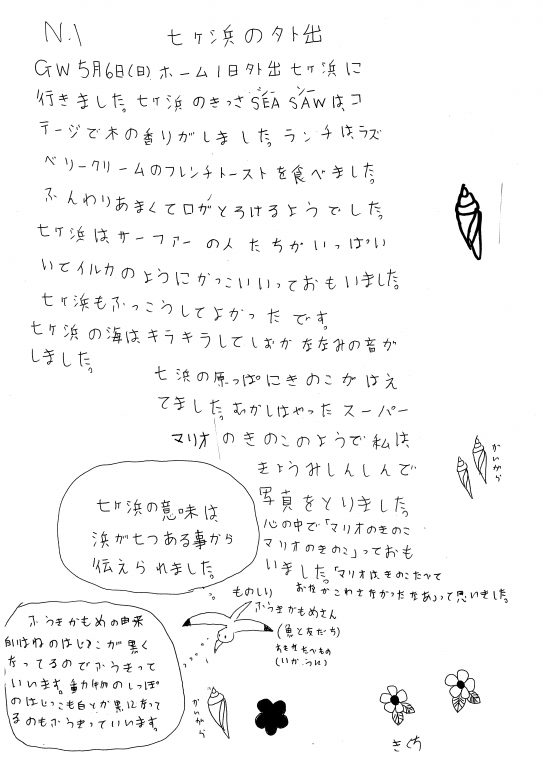 N.1 七ヶ浜の外出
GW5月6日(日)ホーム1日外出七ヶ浜に
行きました。七ヶ浜のきっさSEA SAWは、コ
シー ソー
テージで木の香りがしました。ランチはラズ
ベリークリームのフレンチトーストを食べました。
ふんわりあまくて口がとろけるようでした。
七ヶ浜はサーファーの人たちがいっぱい
いてイルカのようにかっこいいっておもいました。
七ヶ浜もふっこうしてよかったです。
七ヶ浜の海はキラキラしてしずかななみの音が
しました。
七浜の原っぱにきのこがはえ
てました。むかしはやったスーパー
マリオのきのこのようで私は
きょうみしんしんで
写真をとりました。
心の中で「マリオのきのこ
マリオのきのこ」っておも
いました。「マリオはきのこたべて
おなかこわさなかったなあ」って思いました。
かいがら
七ヶ浜の意味は
浜が七つある事から
伝えられました。
ものしり
ふうきかもめさん
(魚と友だち)
おもなたべもの
(いか、うに)
ふうきかもめの由来
白いはねのはじっこが黒く
なってるのでふうきって
いいます。動物のしっぽ
のはじっこも白とか黒になって
るのもふうきっていいます。
かいがら
きくち